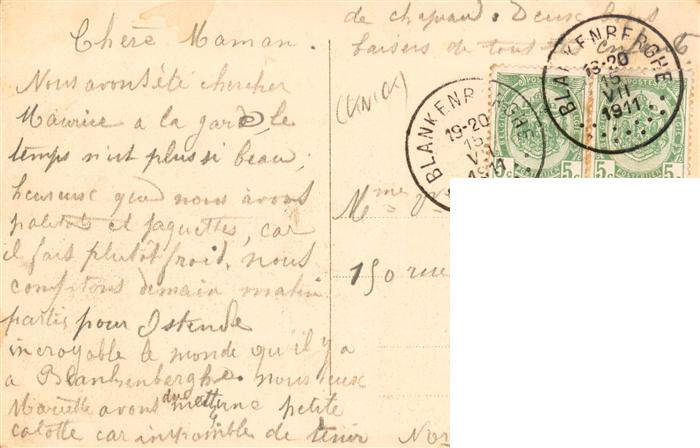 Chère Maman.
Nous avons été chercher
Maurice a la gare, le
temps n'est plus si beau,
heureuse que nous avons
paletots et jaquettes, car
il fait plutôt froid, nous
comptons demain matin
partir pour Ostende
incroyable le monde qu'il y a
a Blankenberghe. nous
Mariette avons dû mettre une petite
calotte car impossible de tenir
de chapeau. Deux bons
baisers de tout
(KNICK)
BLANKENBERGHE
19-20
15
VII
1911
BLANKENBERGHE
19-20
15
VII
1911
POSTES
5c
5c
5c
Mme
150 rue